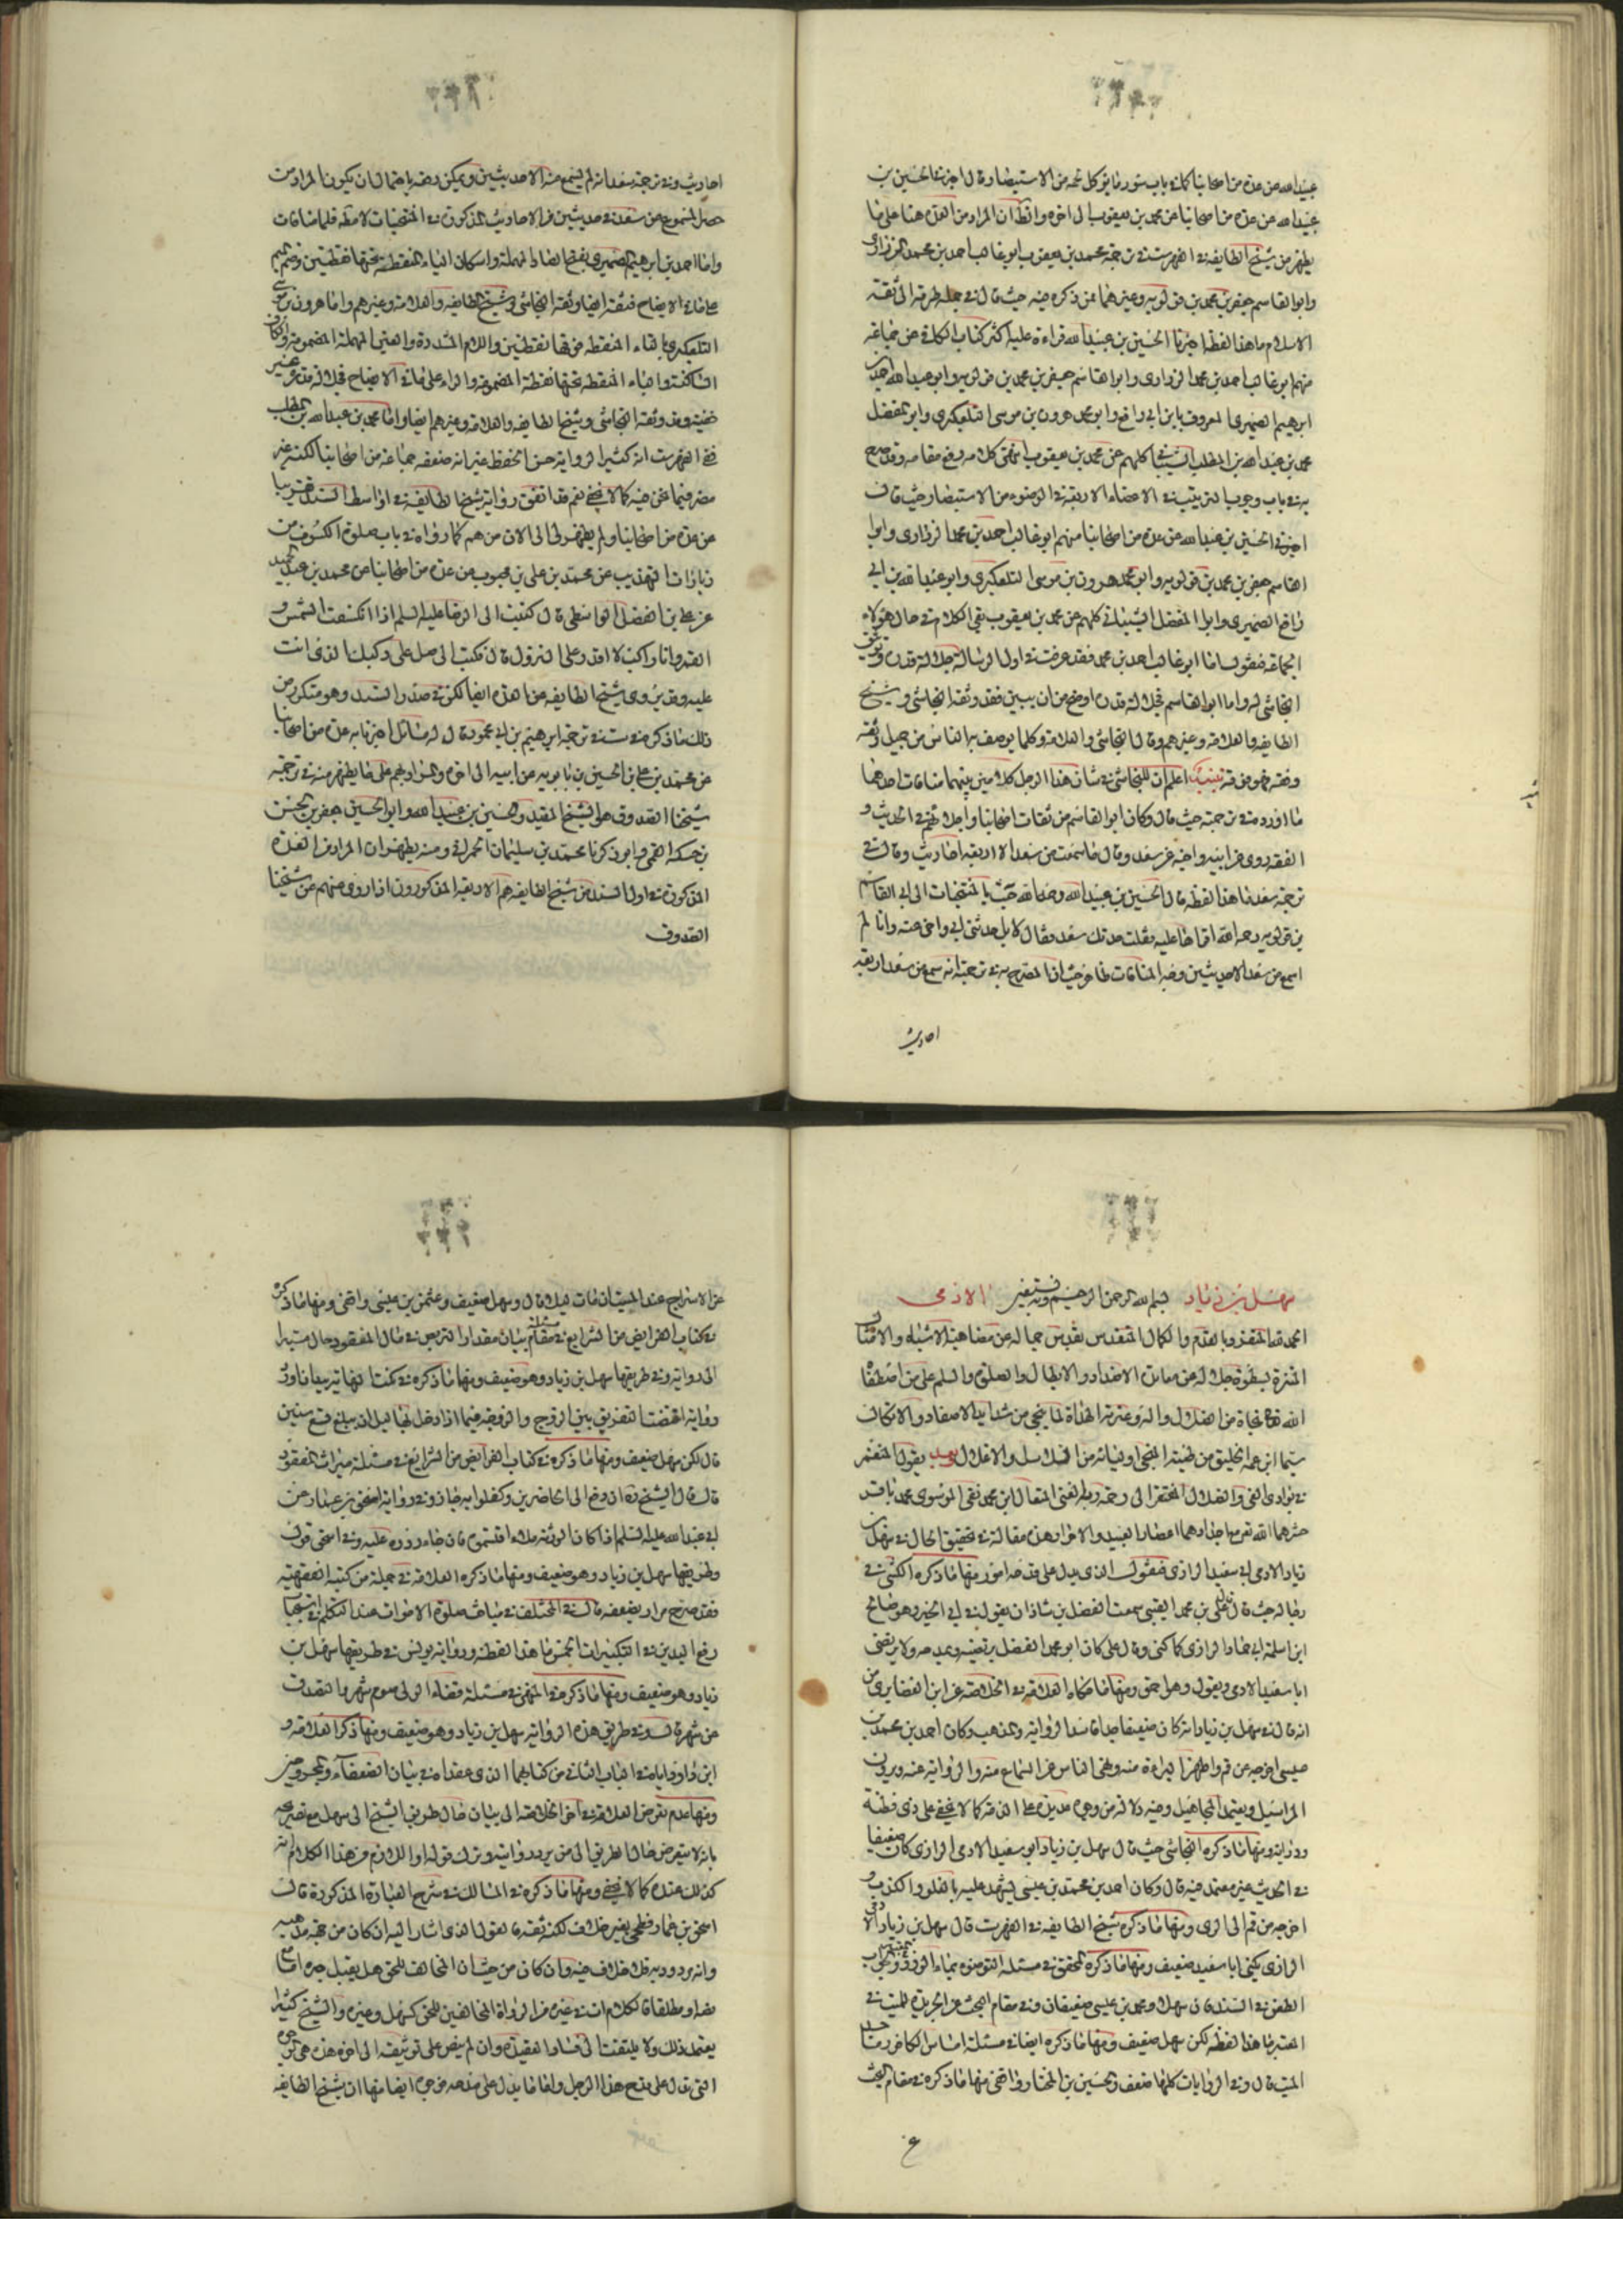 عبيد الله عن عدة من اصحابنا كما في باب سؤر ما يؤكل لحمه من الاستبصار قال اخبرنا الحسين بن
عبيد الله عن عدة من اصحابنا عن محمد بن يعقوب الى اخره والظ ان المراد من العدة هنا على ما
يظهر من شيخ الطايفه في الفهرست في ترجمة محمد بن يعقوب ابو غالب احمد بن محمد الزراري
وابو القاسم جعفر بن محمد بن قولويه وغيرهما ممن ذكره فيه حيث قال في جملة طرقه الى ثقة
الاسلام ما هذا لفظه اخبرنا الحسين بن عبيد الله قراءة عليه اكثر كتاب الكافي عن جماعة
منهم ابو غالب احمد بن محمد الزراري وابو القاسم جعفر بن محمد بن قولويه وابو عبد الله احمد بن
ابرهيم الصيمري المعروف بابن ابي رافع وابو محمد هرون بن موسى التلعكبري وابو المفضل
محمد بن عبد الله بن المطلب الشيباني كلهم عن محمد بن يعقوب انتهى كلامه رفع مقامه وقد صرح
به في باب وجوب الترتيب في الاعضاء الاربعة في الوضوء من الاستبصار حيث قال
اخبرني الحسين بن عبيد الله عن عدة من اصحابنا منهم ابو غالب احمد بن محمد الزراري وابو
القاسم جعفر بن محمد بن قولويه وابو محمد هرون بن موسى التلعكبري وابو عبد الله بن ابي
رافع الصيمري وابو المفضل الشيباني كلهم عن محمد بن يعقوب بقي الكلام في حال هؤلاء
الجماعة فنقول اما ابو غالب احمد بن محمد فقد عرفت في اول الرسالة جلالة قدره وتوثيق
النجاشي له واما ابو القاسم فجلالة قدره اوضح من ان يبين فقد وثقه النجاشي وشيخ
الطايفه والعلامة وغيرهم وقال النجاشي والعلامة وكلما يوصف به الناس من جميل وثقه
وفقه فهو فوقه تنبيه اعلم ان للنجاشي في شان هذا الرجل كلامين بينهما منافات احدهما
ما اورده في ترجمته حيث قال وكان ابو القاسم من ثقات اصحابنا واجلائهم في الحديث و
الفقه روى عن ابيه واخيه عن سعد وقال ما سمعت من سعد الا اربعة احاديث وقال في
ترجمة سعد ما هذا لفظه قال الحسين بن عبيد الله رحمه الله جئت بالمنتخبات الى ابي القاسم
بن قولويه رحمه الله اقراها عليه فقلت حدثك سعد فقال لا بل حدثني ابي واخي عنه وانا لم
اسمع من سعد الا حديثين وجه المنافات ظاهر حيث ان المصرح به في ترجمته انه سمع من سعد اربعة
احاديث
احاديث وفي ترجمة سعد انه لم يسمع منه الا حديثين ويمكن دفعه باحتمال ان يكون المراد من
حصر المسموع من سعد في حديثين من الاحاديث المذكورة في المنتخبات لا مطلقا فلا منافات
واما احمد بن ابرهيم الصيمري بفتح الصاد المهملة واسكان الياء المنقطة تحتها نقطتين وضم الميم
على ما في الايضاح فثقة ايضا وثقه النجاشي وشيخ الطايفه والعلامة وغيرهم واما هرون بن موسى
التلعكبري بالتاء المنقطه فوقها نقطتين واللام المشددة والعين المهملة المضمومة والكاف
الساكنة والباء المنقطه تحتها نقطة المضمومة والراء على ما في الايضاح فجلالة قدره غير
خفية وقد وثقه النجاشي وشيخ الطايفه والعلامة وغيرهم ايضا واما محمد بن عبد الله بن المطلب
ففي الفهرست انه كثير الرواية حسن الحفظ غير انه ضعفه جماعة من اصحابنا لكنه غير
مضر فيما نحن فيه كما لا يخفى نعم قد اتفق رواية شيخ الطايفه في اواسط السند تقريبا
عن عدة من اصحابنا ولم يظهر لي الى الان من هم كما رواه في باب صلوة الكسوف من
زيادات التهذيب عن محمد بن علي بن محبوب عن عدة من اصحابنا عن محمد بن عبد الحميد
عن علي بن الفضل الواسطي قال كتبت الى الرضا عليه السلم اذا انكسفت الشمس و
القمر وانا راكب لا اقدر على النزول قال فكتب الي صل على مركبك الذي انت
عليه وقد يروي شيخ الطايفه عن العدة ايضا لكن في صدر السند وهو متكرر من
ذلك ما ذكره في ست في ترجمة ابرهيم بن ابي محمود قال له مسائل اخبرنا به عدة من اصحابنا
عن محمد بن علي بن الحسين بن بابويه عن ابيه الى اخره والمراد بهم على ما يظهر منه في ترجمة
شيخنا الصدوق هو الشيخ المفيد والحسين بن عبيد الله وابو الحسين جعفر بن الحسن
بن حسكه القمي وابو زكريا محمد بن سليمان الحمراني ومنه يظهر ان المراد من العدة
المذكورة في اول السند من شيخ الطايفه هم الاربعة المذكورون اذا روى عنهم عن شيخنا
الصدوق
سهل بن زياد بسم الله الرحمن الرحيم وبه نستعين الادمي
الحمد لله المتفرد بالقدم والكمال المتقدس بقدس جماله عن مضاهية الاشباه والامثال
المنزه بسطوة جلاله عن مماسة الاضداد والابطال والصلوة والسلم على من اصطفاه
الله نجاة من الضلال واله وعترته الهداة لما ينجي من شدايد الاصفاد والانكال
سيما ابن عمه الخليق من طينته المنجي اوليائه من السلاسل والاغلال وبعد يقول المنغمر
في بوادي الغي والضلال المفتقر الى رحمة ربه الغني المتعال ابن محمد نقي الموسوي محمد باقر
حشرهما الله تعالى مع اجدادهما اعصار العبيد والاحرار هذه مقالة في تحقيق الحال في سهل بن
زياد الادمي ابي سعيد الرازي فنقول الذي يدل على قدحه امور منها ما ذكره الكشي في
رجاله حيث قال علي بن محمد القتيبي سمعت الفضل بن شاذان يقول في ابي الخير وهو صالح
ابن سلمة ابي حماد الرازي كما كنى وقال علي كان ابو محمد الفضل يرتضيه ويمدحه ولا يرتضى
ابا سعيد الادمي ويقول هو احمق ومنها ما حكاه العلامة في الخلاصة عن ابن الغضايري من
انه قال في سهل بن زياد انه كان ضعيفا جدا فاسد الرواية والمذهب وكان احمد بن محمد بن
عيسى اخرجه عن قم واظهر البراءة منه ونهى الناس عن السماع منه والرواية عنه ويروي
المراسيل ويعتمد المجاهيل وفيه دلالة من وجوه عديدة على الذم كما لا يخفى على ذي فطنة
ودراية ومنها ما ذكره النجاشي حيث قال سهل بن زياد ابو سعيد الادمي الرازي كان ضعيفا
في الحديث غير معتمد فيه قال وكان احمد بن محمد بن عيسى يشهد عليه بالغلو والكذب و
اخرجه من قم الى الري ومنها ما ذكره شيخ الطايفه في الفهرست قال سهل بن زياد الادمي
الرازي يكنى ابا سعيد ضعيف ومنها ما ذكره المحقق في مسئلة التوضوء بماء الورد
الطعن في السند فان سهلا ومحمد بن عيسى ضعيفان وفي مقام البحث عن الجريدة للميت في
المعتبر ما هذا لفظه لكن سهل ضعيف ومنها ما ذكره ايضا في مسئلة امساس الكافر جسد
الميت قال وفي الروايات كلها ضعف والحسين بن المختار واقفي منها ما ذكره في مقام البحث
ع
عن الاسراج عند الميت ان مات ليلا قال وسهل ضعيف وعثمن بن عيسى واقفي ومنها ما ذكره
في كتاب الفرايض من الشرايع في مقام بيان مقدار التربص في مال المفقود حال مشيرا
الى رواية وفي طريقها سهل بن زياد وهو ضعيف ومنها ما ذكره في نكت النهاية بعد ما اورد
رواية اقتضت التفريق بين الزوج والزوجة فيما اذا دخل بها قبل ان يبلغ تسع سنين
قال لكن سهل ضعيف ومنها ما ذكره في كتاب الفرايض من الشرايع في مسئلة ميراث المفقود
قال قال الشيخ ره ان دفع الى الحاضرين وكفلوا به جاز وفي رواية اسحق بن عمار عن
ابي عبد الله عليه السلم اذا كان الورثة ملاء اقتسموه فان جاء ردوه عليه وفي اسحق قول
وطريقها سهل بن زياد وهو ضعيف ومنها ما ذكره العلامة في جملة من كتبه الفقهية
فقد صرح مرارا بضعفه قال في المختلف في مباحث صلوة الاموات عند التكلم في استحباب
رفع اليدين في التكبيرات الخمس ما هذا لفظه ورواية يونس في طريقها سهل بن
زياد وهو ضعيف ومنها ما ذكره في المنتهى في مسئلة قضاء الولي صوم شهر والتصدق
عن شهر قال وفي طريق هذه الرواية سهل بن زياد وهو ضعيف ومنها ذكر العلامة و
ابن داود اياه في الباب الثاني من كتابهما الذي عقداه في بيان الضعفاء والمجروحين
ومنها عدم تعرض العلامة في اخر الخلاصة الى بيان حال طريق الشيخ الى سهل مع تصريحه
بانه لا يتعرض حال الطريق الى من يرد روايته ويترك قوله واللازم من هذا الكلام انه
كذلك عنده كما لا يخفى ومنها ما ذكره في المسالك في شرح العبارة المذكورة قال
اسحق بن عمار فطحي بغير خلاف لكنه ثقة فالقول الذي اشار اليه ان كان من جهة مذهبه
وانه مردود به فلا خلاف فيه وان كان من حيث ان المخالف للحق هل يقبل خبره اما
مضا او مطلقا فالكلام ات في غيره من الرواة المخالفين للحق كسهل وغيره والشيخ كثيرا
يعتمد ذلك ولا يلتفت الى فساد العقيدة وان لم ينص على توثيقه الى اخره هذه هي الوجوه
التي تدل على قدح هذا الرجل واما ما يدل على مدحه فوجوه ايضا منها ان شيخ الطايفه